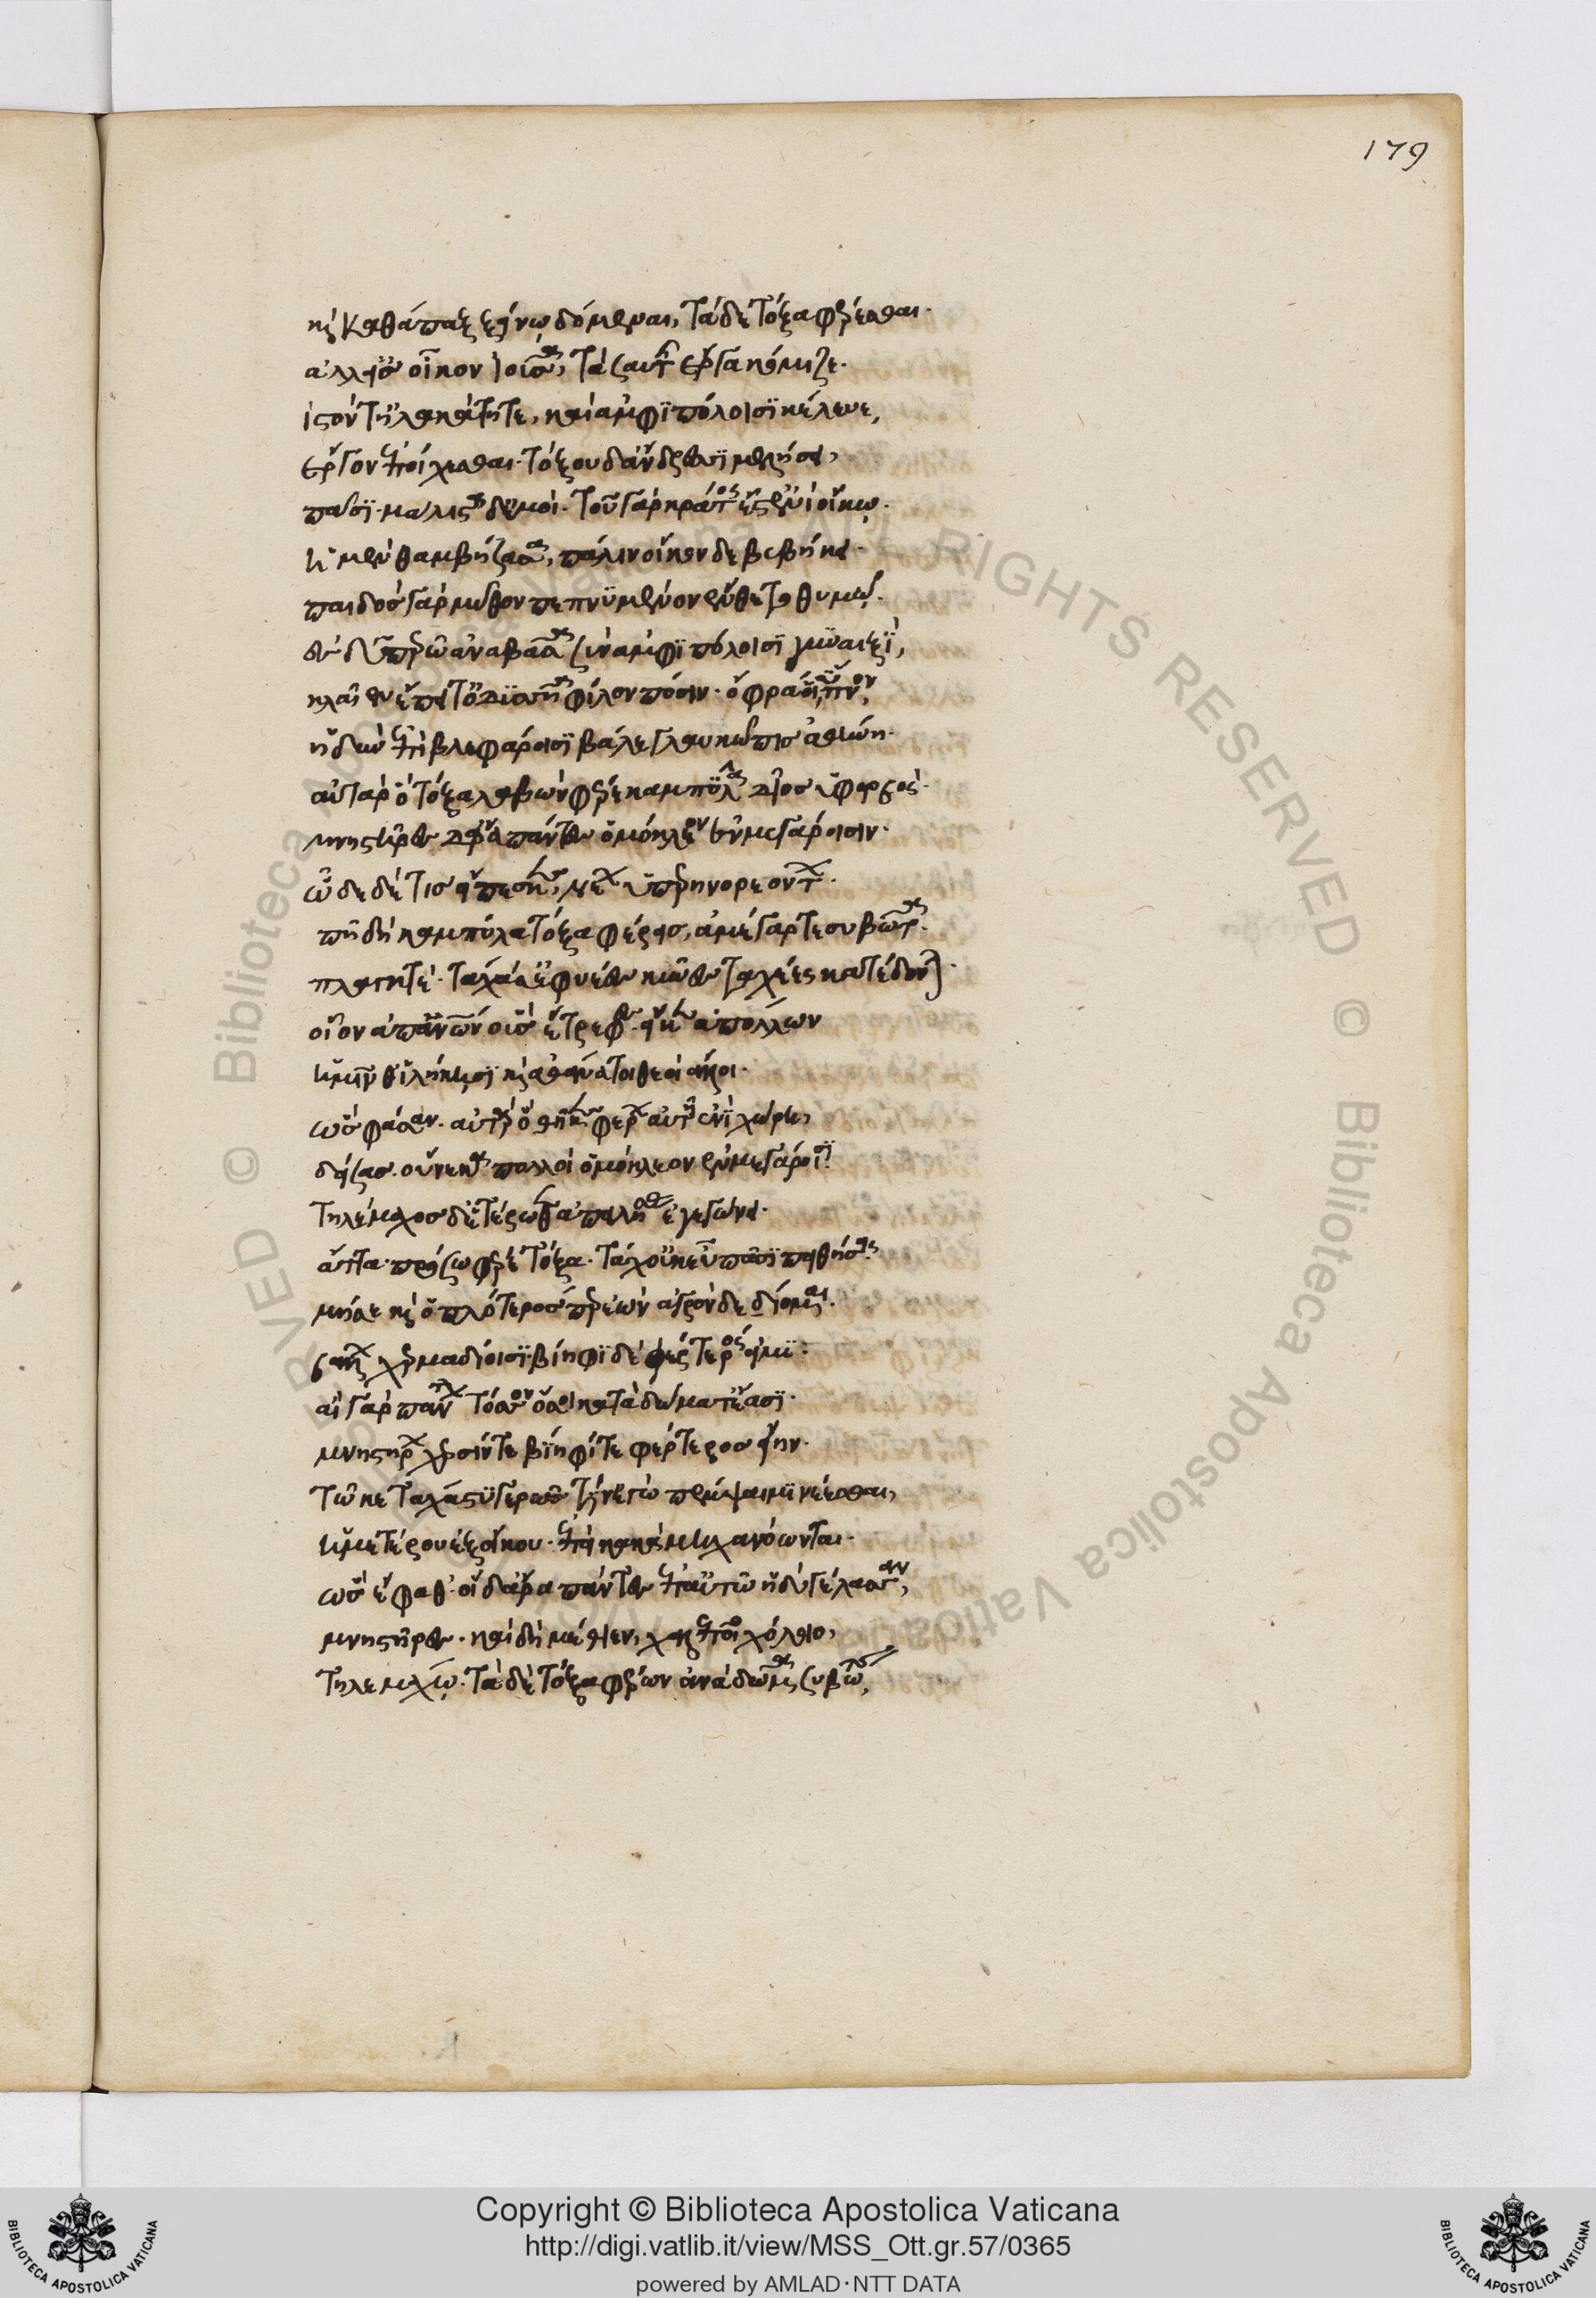 179
καὶ καθάπαξ ξείνῳ δόμεναι, τάδε τόξα φέρεσθαι.
ἀλλ' εἰς οἶκον ἰοῦσα, τὰ σαυτῆς ἔργα κόμιζε.
ἱστόν τ' ἠλακάτην τε, καὶ ἀμφιπόλοισι κέλευε,
ἔργον ἐποίχεσθαι. τόξον δ' ἄνδρεσσι μελήσει,
πᾶσι. μάλιστα δ' ἐμοί. τοῦ γὰρ κράτος ἔστ' ἐνὶ οἴκῳ.
ἡ μὲν θαμβήσασα, πάλιν οἶκον δὲ βεβήκει.
παιδὸς γὰρ μῦθον πεπνυμένον ἔνθετο θυμῷ.
ἐς δ' ὑπερῷ' ἀναβᾶσα σὺν ἀμφιπόλοισι γυναιξὶ,
κλαῖεν ἔπειτ' ὀδυσῆα φίλον πόσιν. ὄφρά οἱ ὕπνον,
ἡδὺν ἐπὶ βλεφάροισι βάλε γλαυκῶπις ἀθήνη.
αὐτὰρ ὁ τόξα λαβὼν φέρε καμπύλα δῖος ὑφορβός.
μνηστῆρες δ' ἄρα πάντες ὁμόκλεον ἐν μεγάροισιν.
ὧδε δέ τις εἴπεσκε, νέων ὑπερηνορεόντων.
πῆ δὴ καμπύλα τόξα φέρεις, ἀμέγαρτε συβῶτα.
πλαγκτέ. τάχα σ' ἐφ' ὕεσσι κύνες ταχέες κατέδονται.
οἶον ἀπ' ἀνθρώπων οὓς ἔτρεφες. εἴ κεν ἀπόλλων
ἡμῖν ἱλήκῃσι καὶ ἀθάνατοι θεοὶ ἄλλοι.
ὣς φάσαν. αὐτὰρ ὁ θῆκε φέρων αὐτῇ ἐνὶ χώρῃ,
δείσας. οὕνεκα πολλοὶ ὁμόκλεον ἐν μεγάροισι.
τηλέμαχος δ' ἑτέρωθεν ἀπειλήσας ἐγεγώνει.
ἄττα. πρόσω φέρε τόξα. τάχ' οὐκ εὖ πᾶσι πιθήσεις.
μή σε καὶ ὁπλότερός περ ἐὼν ἀγρόνδε δίωμαι.
βάλλων χερμαδίοισι. βίηφι δὲ φέρτερός εἰμι.
αἲ γὰρ πάντων τόσσον ὅσοι κατὰ δώματ' ἔασι.
μνηστήρων χερσίν τε βίηφί τε φέρτερος εἴην.
τῷ κε τάχα στυγερῶς τιν' ἐγὼ πέμψαιμι νέεσθαι,
ἡμετέρου ἐξ οἴκου. ἐπεὶ κακὰ μηχανόωνται.
ὣς ἔφαθ'. οἱ δ' ἄρα πάντες ἐπ' αὐτῷ ἡδὺ γέλασσαν,
μνηστῆρες. καὶ δὴ μέθιεν, χαλεποῖο χόλοιο,
τηλεμάχῳ. τὰ δὲ τόξα φέρων ἀνὰ δῶμα συβώτης,
Copyright © Biblioteca Apostolica Vaticana
http://digi.vatlib.it/view/MSS_Ott.gr.57/0365
powered by AMLAD·NTT DATA